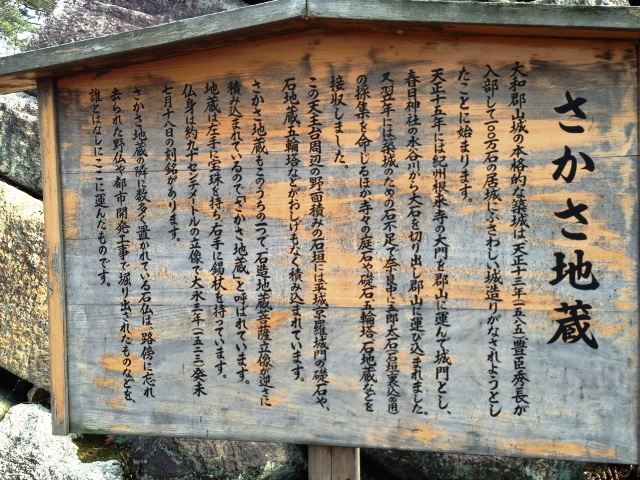 さかさ地蔵
大和郡山城の本格的な築城は、天正十三年(一五八五)豊臣秀長が
入部して一〇〇万石の居城にふさわしい城造りがなされようとし
たことに始まります。
天正十五年には紀州根来寺の大門を郡山に運んで城門とし、
春日神社の水谷川から大石を切り出し郡山に運び込まれました。
又翌年には築城のための石不足で奈良中に五郎太石(石垣裏込め用)
の採集を命じるほか寺々の庭石や礎石、五輪塔、石地蔵などを
接収しました。
この天主台周辺の野面積みの石垣には平城京羅城門の礎石や、
石地蔵五輪塔などがおしげもなく積み込まれています。
さかさ地蔵もこのうちの一つで、石造地蔵菩薩立像が逆さに
積み込まれているので「さかさ地蔵」と呼ばれています。
地蔵は左手に宝珠を持ち右手に錫杖を持っています。
仏身は約九十センチメートルの立像で大永三年(一五二三)癸未
七月十八日の刻銘があります。
さかさ地蔵の隣に数多く置かれている石仏は、路傍に忘れ
去られた野仏や都市開発工事で堀り出されたものなどを、
誰とはなしにここに運んだものです。